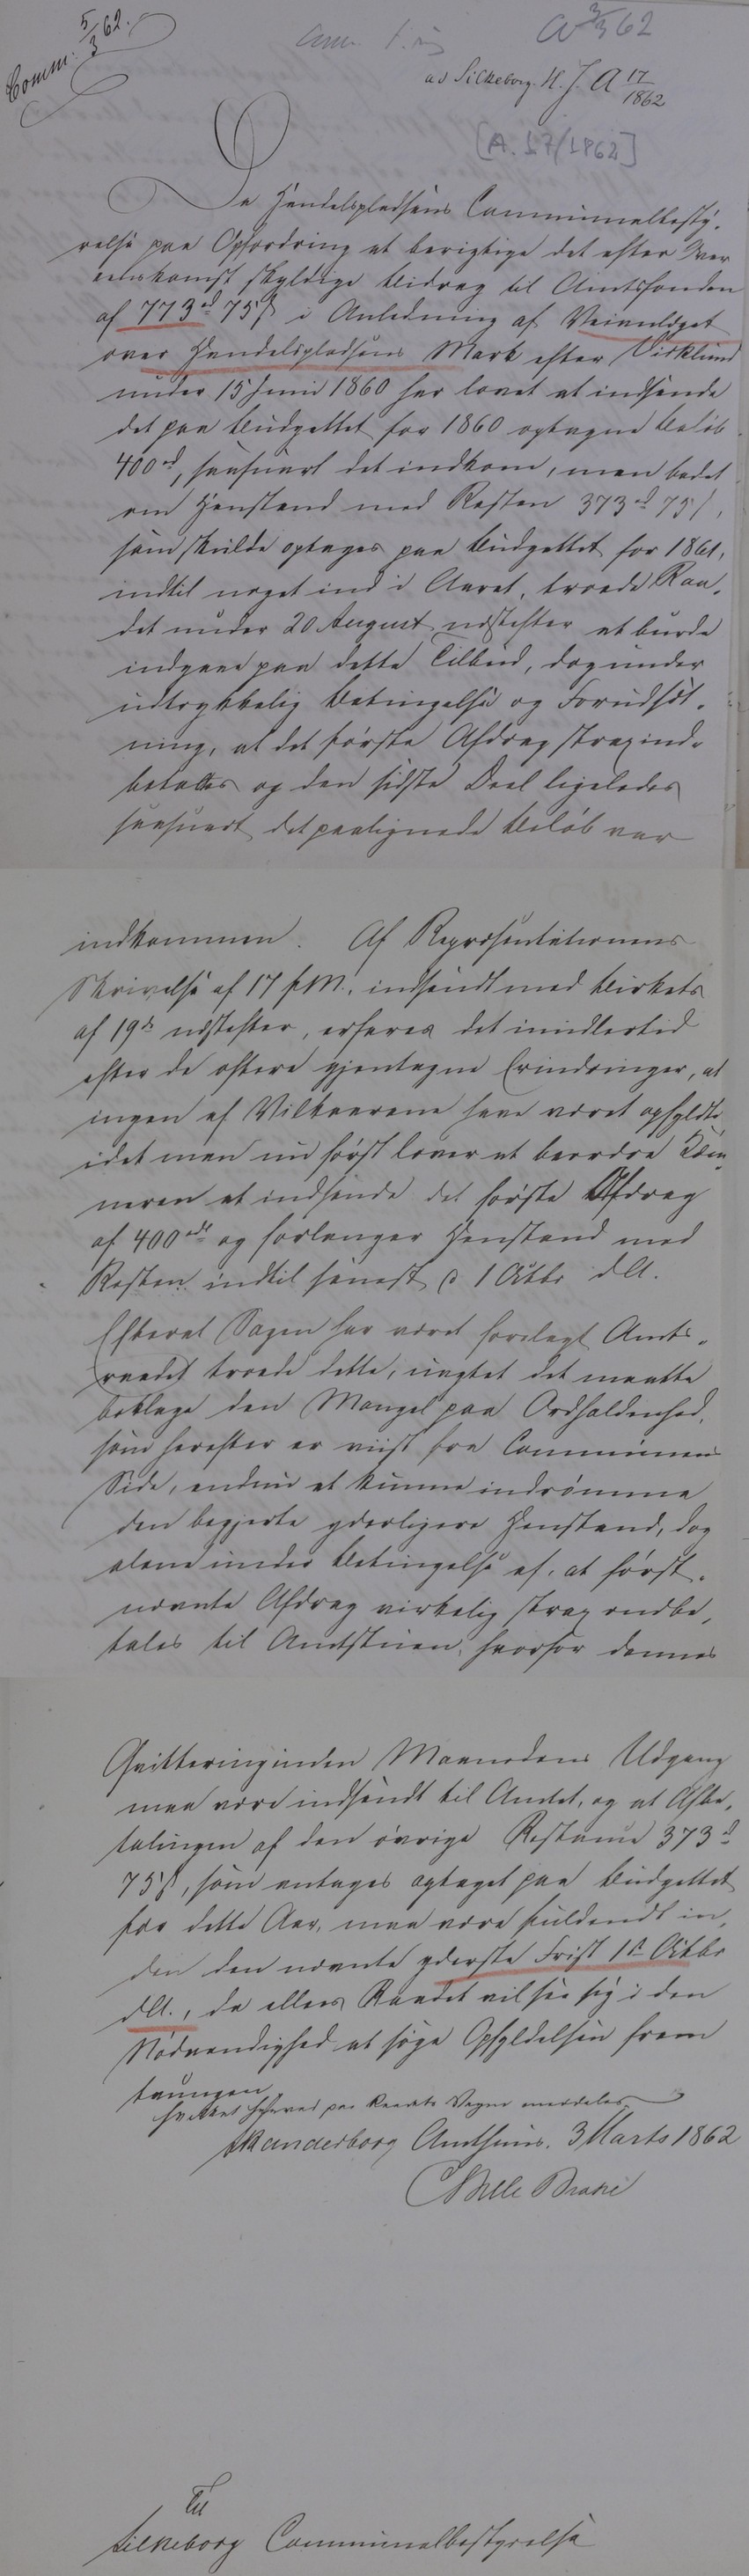 Comm. 5/3 62.
A 3/3 62
ad Silkeborg. H. J. A 17/1862
[A. 17/1862]
Da Handelspladsens Communalbesty-
relse paa Opfordring at berigtige det efter Over
eenskomst skyldige Bidrag til Amtsfonden
af 773 rd 75 s i Anledning af Veianlæget
over Handelspladsens Mark efter Virklund
under 15 Juni 1860 har lovet at indsende
det paa Budgettet for 1860 optagne Beløb
400 rd, saasnart det indkom, men bedet
om Henstand med Resten 373 rd 75 s,
som skulde optages paa Budgettet for 1861,
indtil noget ind i Aaret, troede Raa-
det under 20 August næstefter at burde
indgaae paa dette Tilbud, dog under
udtrykkelig Betingelse og Forudsæt-
ning, at det første Afdrag strax ind-
betaltes og den sidste Deel ligeledes
saasnart det paalignede Beløb var
indkommen. Af Repræsentationens
Skrivelse af 17 f.M., indsendt med Birkets
af 19de næstefter, erfares det imidlertid
efter de oftere gjentagne Erindringer, at
ingen af Vilkaarene have været opfyldte
idet man nu først lover at beordre Kæm-
neren at indsende det første Afdrag
af 400 rd og forlanger Henstand med
Resten indtil senest d 1 Octbr d.A.
Efterat Sagen har været forelagt Amts-
raadet troede dette, uagtet det maatte
beklage den Mangel paa Ordholdenhed,
som herefter er viist fra Communens
Side, endnu at kunne indrømme
den begjerte yderligere Henstand, dog
alene under Betingelse af, at først-
nævnte Afdrag virkelig strax indbe-
tales til Amtstuen, hvorfor dennes
Qvittering inden Maanedens Udgang
maa være indsendt til Amtet, og at Afbe-
talingen af den øvrige Restance 373 rd
75 s, som antages optaget paa Budgettet
for dette Aar, maa være fuldendt in-
den den nævnte yderste Frist 1ste Octbr
d.A., da ellers Raadet vil see sig i den
Nødvendighed at søge Opfyldelsen frem
tvungen.
Hvilket herved paa Raadets Vegne meddeles
Skanderborg Amthuus. 3 Marts 1862
Bille Brahe
Til
Silkeborg Communalbestyrelse